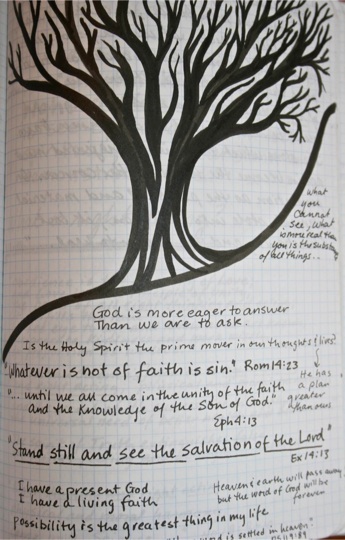 What
you
Cannot
see, what
is more real than
you is the substance
of all things...
God is more eager to answer
Than we are to ask.
Is the Holy Spirit the prime mover in our thoughts & lives?
He has
a plan
greater
than ours
"Whatever is not of faith is sin." Rom 14:23
"... until we all come in the unity of the faith
and the knowledge of the Son of God."
Eph 4:13
"Stand still and see the salvation of the Lord"
Ex 14:13
I have a present God
I have a living faith
Heaven & earth will pass away
but the word of God will be
forever
possibility is the greatest thing in my life
word is settled in heaven."
Ps 119:89